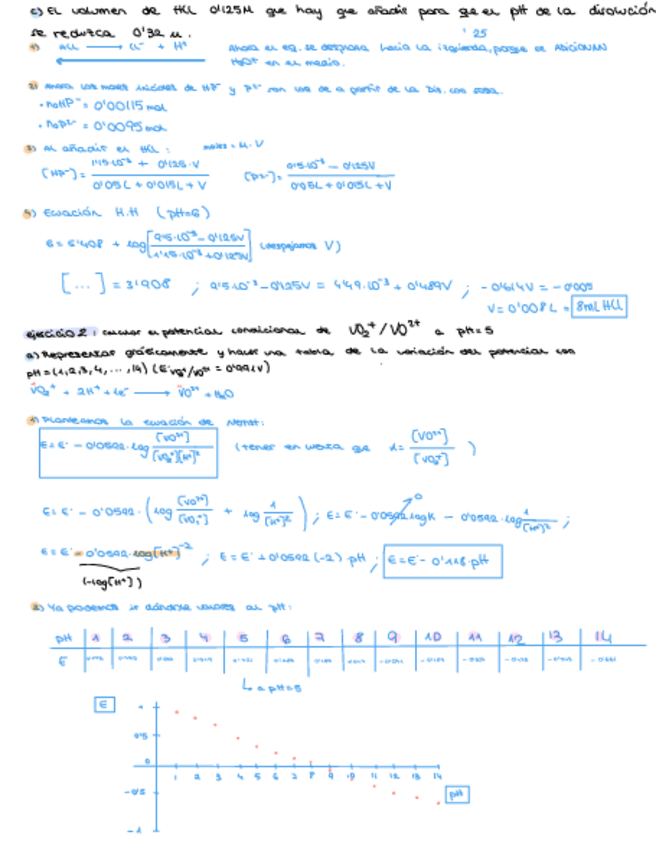 c) El volumen de HCl 0'125M que hay que añadir para que el pH de la disolución
se reduzca 0'32 u.
'25
1) HCl → Cl⁻ + H⁺ Ahora el eq. se desplaza hacia la izquierda, porque se ADICIONAN
H₃O⁺ en el medio.
2) Ahora los moles iniciales de HP⁻ y P²⁻ son los de a partir de la Dis. con sosa.
· n₀HP⁻ = 0'00115 mol
· n₀P²⁻ = 0'0095 mol
3) Al añadir el HCl: moles = M·V
[HP⁻] = 1'15·10⁻³ + 0'125·V / 0'05L + 0'015L + V [P²⁻] = 9'5·10⁻³ − 0'125V / 0'05L + 0'015L + V
Ecuación H.H (pH=6)
6 = 5'408 + log[9'5·10⁻³ − 0'125V / 1'15·10⁻³ + 0'125V] (despejamos V)
[...] = 3'908 ; 9'5·10⁻³ − 0'125V = 4'49·10⁻³ + 0'489V ; − 0'614V = − 0'005
V = 0'008L = 8mL HCl
ejercicio 2: calcular el potencial condicional de VO₂⁺/VO²⁺ a pH=5
a) Representar gráficamente y hacer una tabla de la variación del potencial con
pH = (1,2,3,4, ..., 14) (E° VO₂⁺/VO²⁺ = 0'991V)
VO₂⁺ + 2H⁺ + 1e⁻ → VO²⁺ + H₂O
1) Planteamos la ecuación de Nernst:
E = E° − 0'0592·log [VO²⁺] / [VO₂⁺][H⁺]² (tener en cuenta que [VO²⁺] / [VO₂⁺] )
E = E° − 0'0592·( log [VO²⁺] / [VO₂⁺] + log 1 / [H⁺]² ) ; E = E° − 0'0592 log K − 0'0592·log 1 / [H⁺]² ;
0
E = E° − 0'0592·log[H⁺]⁻² ; E = E° + 0'0592 (−2) · pH ; E = E° − 0'118·pH
(−log[H⁺])
2) Ya podemos ir dándose valores al pH:
pH 1 2 3 4 5 6 7 8 9 10 11 12 13 14
E
↳ a pH=5
E
1
0'5
0
1 2 3 4 5 6 7 8 9 10 11 12 13 14
−0'5
pH
−1